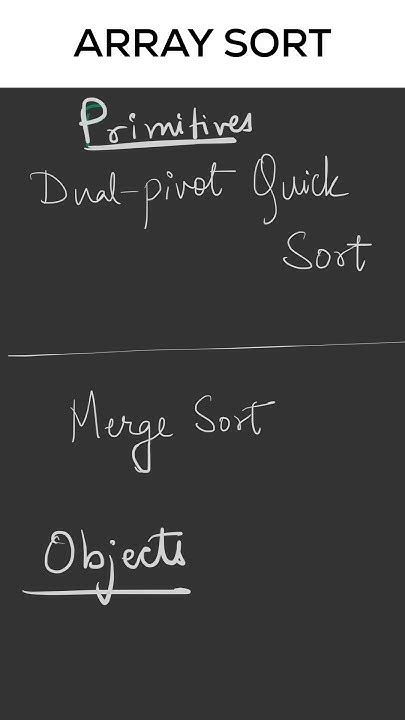 ARRAY SORT
Primitives
Dual-pivot Quick
Sort
Merge Sort
Objects